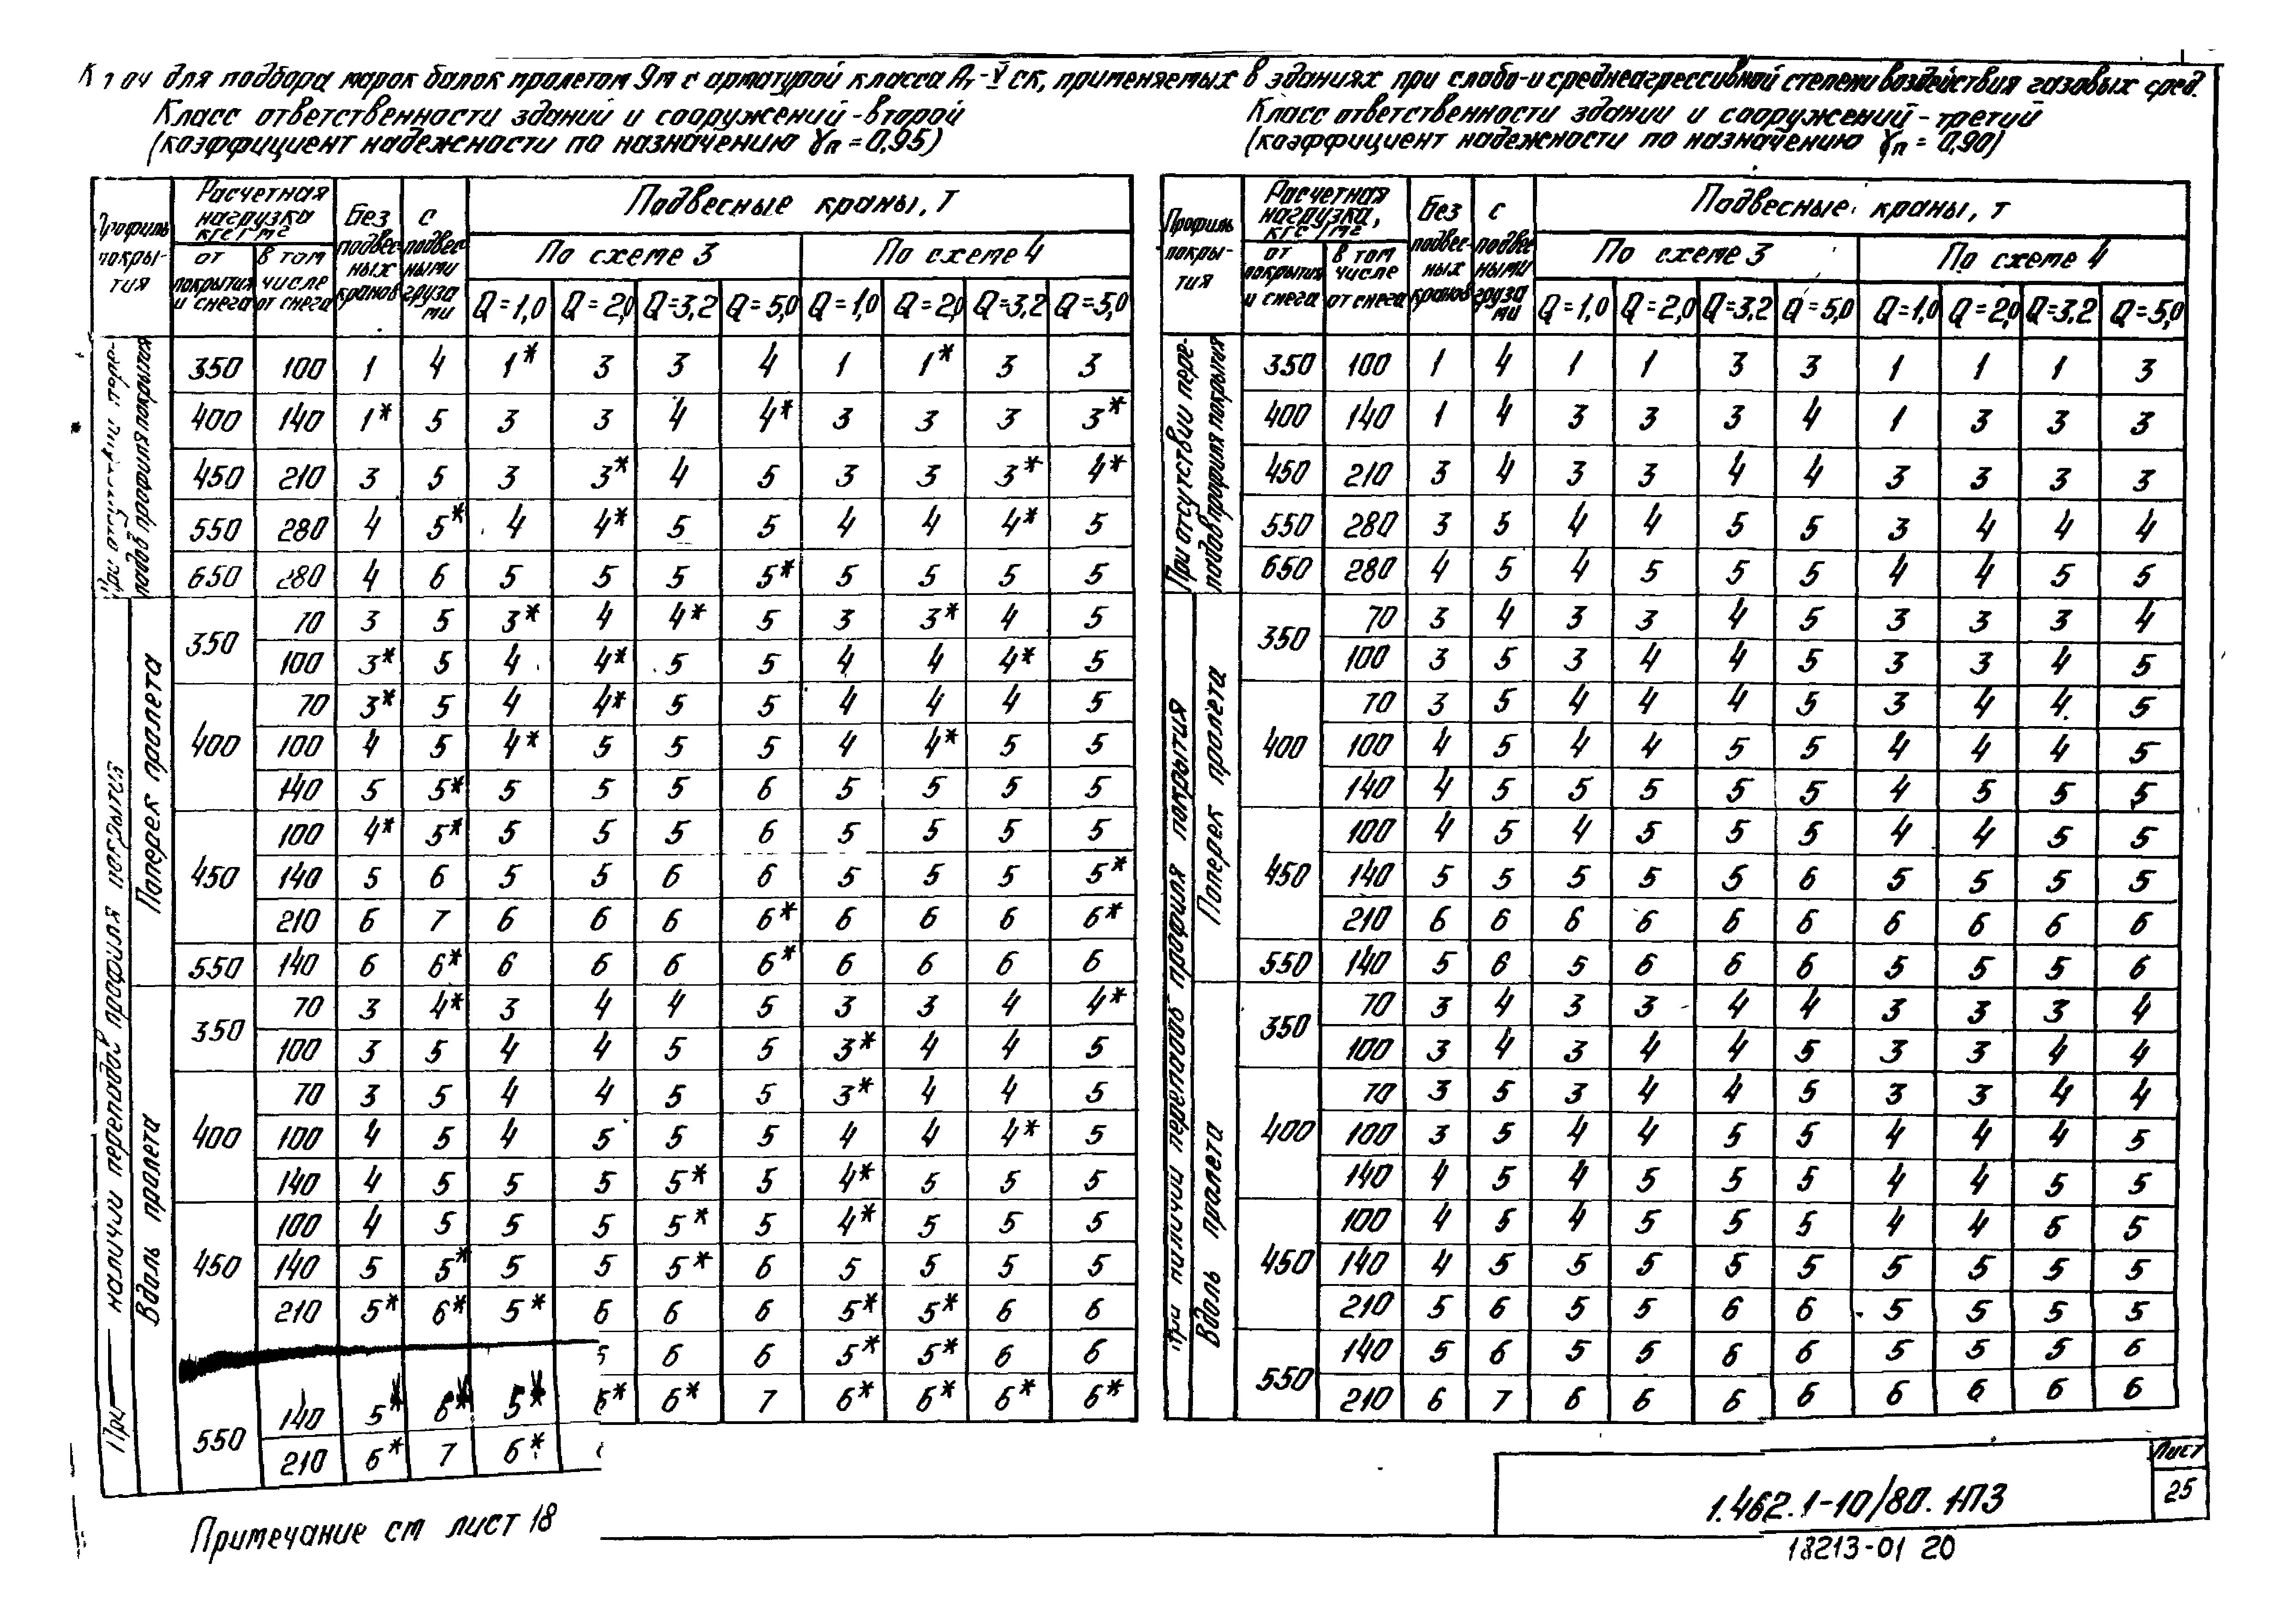 для подбора марок балок пролетом 9м с арматурой класса Ат-V ск, применяемых в зданиях при слабо- и среднеагрессивной степени воздействия газовых сред.
Класс ответственности зданий и сооружений - второй
(коэффициент надежности по назначению γп = 0,95)
Профиль покрытия
Расчетная нагрузка кгс/м2
от покрытия и снега
в том числе от снега
Без подвесных кранов
с подвесными грузами
Подвесные краны, т
По схеме 3
По схеме 4
Q=1,0 Q=2,0 Q=3,2 Q=5,0 Q=1,0 Q=2,0 Q=3,2 Q=5,0
350 100 1 4 1* 3 3 4 1 1* 3 3
400 140 1* 5 3 3 4 4* 3 3 3 3*
450 210 3 5 3 3* 4 5 3 3 3* 4*
550 280 4 5* 4 4* 5 5 4 4 4* 5
650 280 4 6 5 5 5 5* 5 5 5 5
При наличии перепадов профиля покрытия
Поперек пролета
350 70 3 5 3* 4 4* 5 3 3* 4 5
100 3* 5 4 4* 5 5 4 4 4* 5
400 70 3* 5 4 4* 5 5 4 4 4 5
100 4 5 4* 5 5 5 4 4* 5 5
140 5 5* 5 5 5 6 5 5 5 5
450 100 4* 5* 5 5 5 6 5 5 5 5
140 5 6 5 5 6 6 5 5 5 5*
210 6 7 6 6 6 6* 6 6 6 6*
550 140 6 6* 6 6 6 6* 6 6 6 6
Вдоль пролета
350 70 3 4* 3 4 4 5 3 3 4 4*
100 3 5 4 4 5 5 3* 4 4 5
400 70 3 5 4 4 5 5 3* 4 4 5
100 4 5 4 5 5 5 4 4 4* 5
140 4 5 5 5 5* 5 4* 5 5 5
450 100 4 5 5 5 5* 5 4* 5 5 5
140 5 5* 5 5 5* 6 5 5 5 5
210 5* 6* 5* 6 6 6 5* 5* 6 6
6 6 5* 5* 6 6
550 140 5* 6* 5*
6* 7 6* 6* 6* 6*
210 6* 7 6*
Примечание см лист 18
Класс ответственности здании и сооружений - третий
(коэффициент надежности по назначению γп = 0,90)
Профиль покрытия
Расчетная нагрузка, кгс/м2
от покрытия и снега
в том числе от снега
Без подвесных кранов
с подвесными грузами
Подвесные краны, т
По схеме 3
По схеме 4
Q=1,0 Q=2,0 Q=3,2 Q=5,0 Q=1,0 Q=2,0 Q=3,2 Q=5,0
При отсутствии перепадов профиля покрытия
350 100 1 4 1 1 3 3 1 1 1 3
400 140 1 4 3 3 3 4 1 3 3 3
450 210 3 4 3 3 4 4 3 3 3 3
550 280 3 5 4 4 5 5 3 4 4 4
650 280 4 5 4 5 5 5 4 4 5 5
При наличии перепадов профиля покрытия
Поперек пролета
350 70 3 4 3 3 4 5 3 3 3 4
100 3 5 3 4 4 5 3 3 4 5
400 70 3 5 4 4 4 5 3 4 4 5
100 4 5 4 4 5 5 4 4 4 5
140 4 5 5 5 5 5 4 5 5 5
450 100 4 5 4 5 5 5 4 4 5 5
140 5 5 5 5 5 6 5 5 5 5
210 6 6 6 6 6 6 6 6 6 6
550 140 5 6 5 6 6 6 5 5 5 6
Вдоль пролета
350 70 3 4 3 3 4 4 3 3 3 4
100 3 4 3 4 4 5 3 3 4 4
400 70 3 5 3 4 4 5 3 3 4 4
100 3 5 4 4 5 5 4 4 4 5
140 4 5 4 5 5 5 4 4 5 5
450 100 4 5 4 5 5 5 4 4 5 5
140 4 5 5 5 5 5 5 5 5 5
210 5 6 5 5 6 6 5 5 5 5
550 140 5 6 5 5 6 6 5 5 5 6
210 6 7 6 6 6 6 6 6 6 6
1.462.1-10/80.1ПЗ
Лист
25
18213-01 20